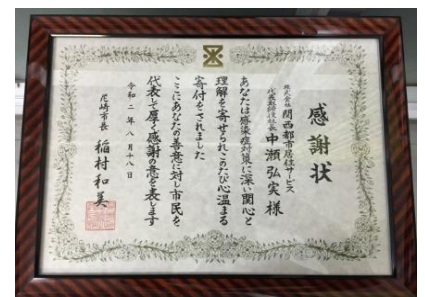 感謝状
株式会社 関西都市居住サービス
代表取締役社長 中瀬弘実様
あなたは感染症対策に深い関心と
理解を寄せられこのたび心温まる
寄付をされました
ここにあなたの善意に対し市民を
代表して厚く感謝の意を表します
令和二年八月十八日
尼崎市長 稲村和美